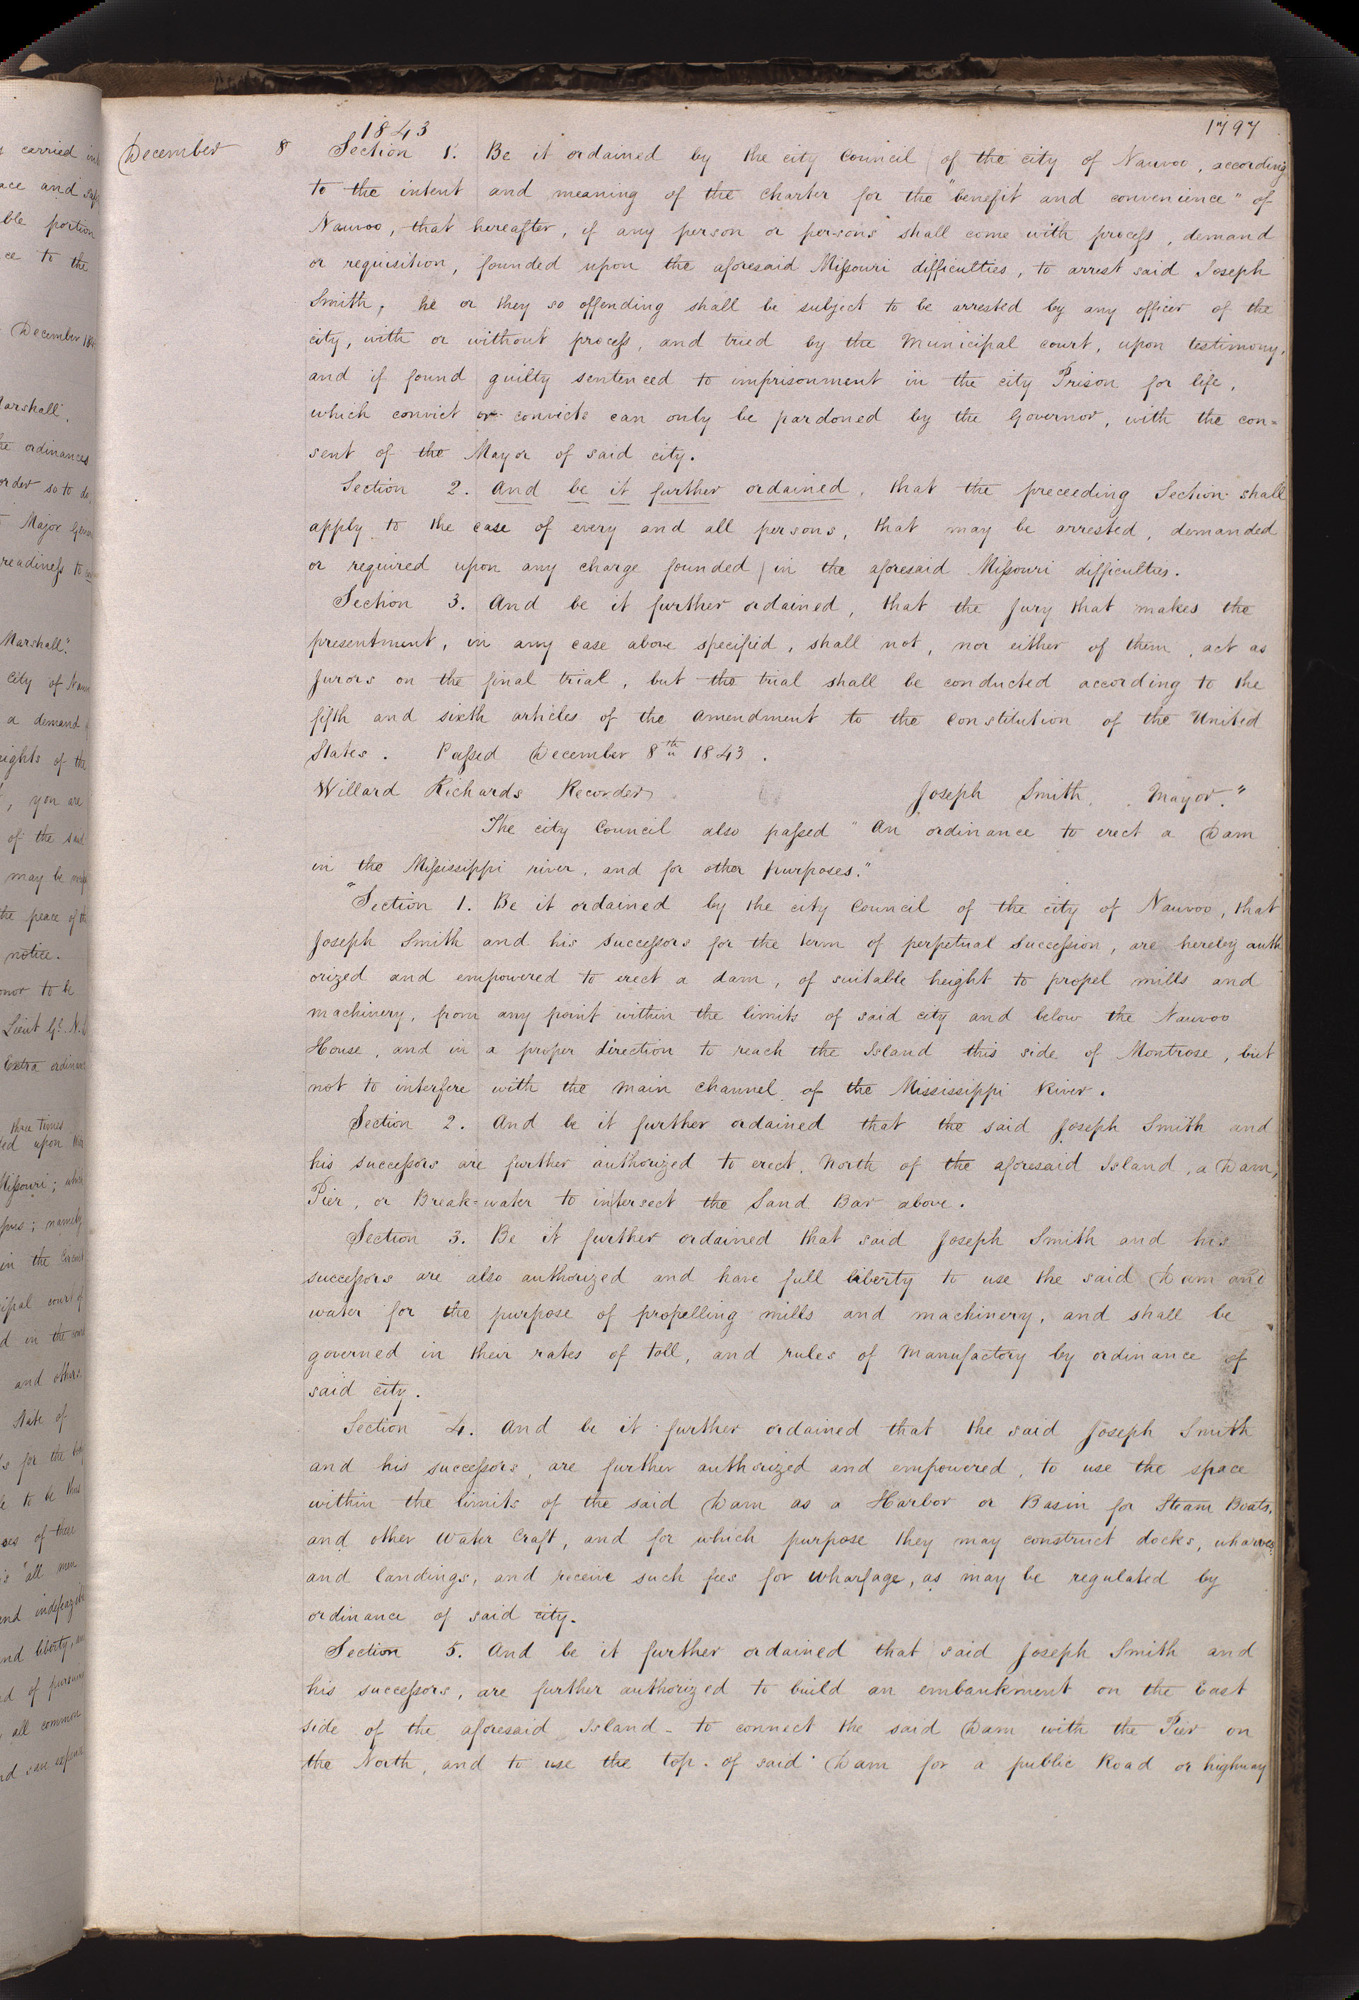 1843
1797
December 8 Section 1. Be it ordained by the city Council of the city of Nauvoo, according
to the intent and meaning of the Charter for the "benefit and convenience" of
Nauvoo, that hereafter, if any person or persons shall come with process, demand
or requisition, founded upon the aforesaid Missouri difficulties, to arrest said Joseph
Smith, he or they so offending shall be subject to be arrested by any officer of the
city, with or without process, and tried by the Municipal court, upon testimony,
and if found guilty sentenced to imprisonment in the city Prison for life,
which convict or convicts can only be pardoned by the Governor, with the con=
sent of the Mayor of said city.
Section 2. And be it further ordained, that the preceeding Section shall
apply to the case of every and all persons, that may be arrested, demanded
or required upon any charge founded in the aforesaid Missouri difficulties.
Section 3. And be it further ordained, that the Jury that makes the
presentment, in any case above specified, shall not, nor either of them, act as
Jurors on the final trial, but the trial shall be conducted according to the
fifth and sixth articles of the amendment to the Constitution of the United
States. Passed December 8th 1843.
Willard Richards Recorder Joseph Smith, Mayor."
The city Council also passed "An ordinance to erect a Dam
in the Mississippi river, and for other purposes."
"Section 1. Be it ordained by the city Council of the city of Nauvoo, that
Joseph Smith and his successors for the term of perpetual succession, are hereby auth
orized and empowered to erect a dam, of suitable height to propel mills and
machinery, from any point within the limits of said city and below the Nauvoo
House, and in a proper direction to reach the Island this side of Montrose, but
not to interfere with the main channel of the Mississippi River.
Section 2. And be it further ordained that the said Joseph Smith and
his successors are further authorized to erect, North of the aforesaid Island, a Dam,
Pier, or Break=water to intersect the Sand Bar above.
Section 3. Be it further ordained that said Joseph Smith and his
successors are also authorized and have full liberty to use the said Dam and
water for the purpose of propelling mills and machinery, and shall be
governed in their rates of toll, and rules of Manufactory by ordinance of
said city.
Section 4. And be it further ordained that the said Joseph Smith
and his successors, are further authorized and empowered, to use the space
within the limits of the said Dam as a Harbor or Basin for Steam Boats,
and other Water Craft, and for which purpose they may construct docks, wharves
and landings, and receive such fees for wharfage, as may be regulated by
ordinance of said city.
Section 5. And be it further ordained that said Joseph Smith and
his successors, are further authorized to build an embankment on the East
side of the aforesaid Island - to connect the said Dam with the Pier on
the North, and to use the top of said Dam for a public Road or highway